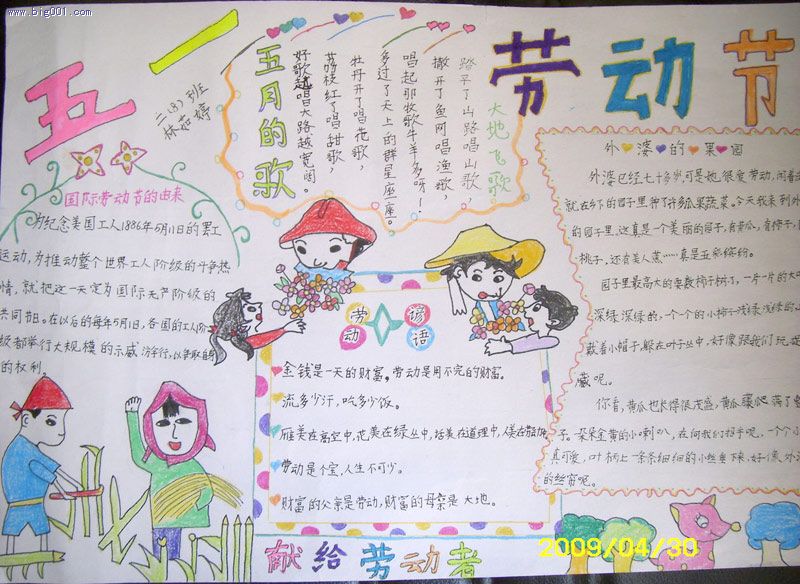 www.big001.com
五一 劳动节
二(8)班
林茹婷
五月的歌
好歌越唱大路越宽阔。
荔枝红了唱甜歌，
牡丹开了唱花歌，
多过了天上的群星座一座。
唱起那牧歌牛羊多呀！
撒开了鱼网唱渔歌，
踏平了山路唱山歌，
大地飞歌
国际劳动节的由来
为纪念美国工人1886年5月1日的罢工
运动，为推动整个世界工人阶级的斗争热
情，就把这一天定为国际无产阶级的
共同节日。在以后的每年5月1日，各国的工人阶
级都举行大规模的示威游行，以争取自身
的权利。
劳动谚语
金钱是一天的财富，劳动是用不完的财富。
流多少汗，吃多少饭。
雁美在高空中，花美在绿丛中，话美在道理中，人美在劳动中
劳动是个宝，人生不可少。
财富的父亲是劳动，财富的母亲是大地。
外婆的果园
外婆已经七十多岁可是她很爱劳动，闲着
就在乡下的园子里种了许多瓜果蔬菜。今天我来到外
的园子里，这真是一个美丽的园子，有黄瓜，有柿子，
桃子，还有美人蕉……真是五彩缤纷。
园子里最高大的要数柿子树了，一片一片的大
深绿深绿的，一个个的小柿子浅绿浅绿的，
戴着小帽子，躲在叶子丛中，好像跟我们玩捉
藏呢。
你看，黄瓜也长得很茂盛，黄瓜藤爬满了
子。朵朵金黄的小喇叭，在向我们招手呢，一个个小
真可爱，叶柄上一条条细细的小丝垂下来，好像外
的丝窗呢。
献给劳动者
2009/04/30